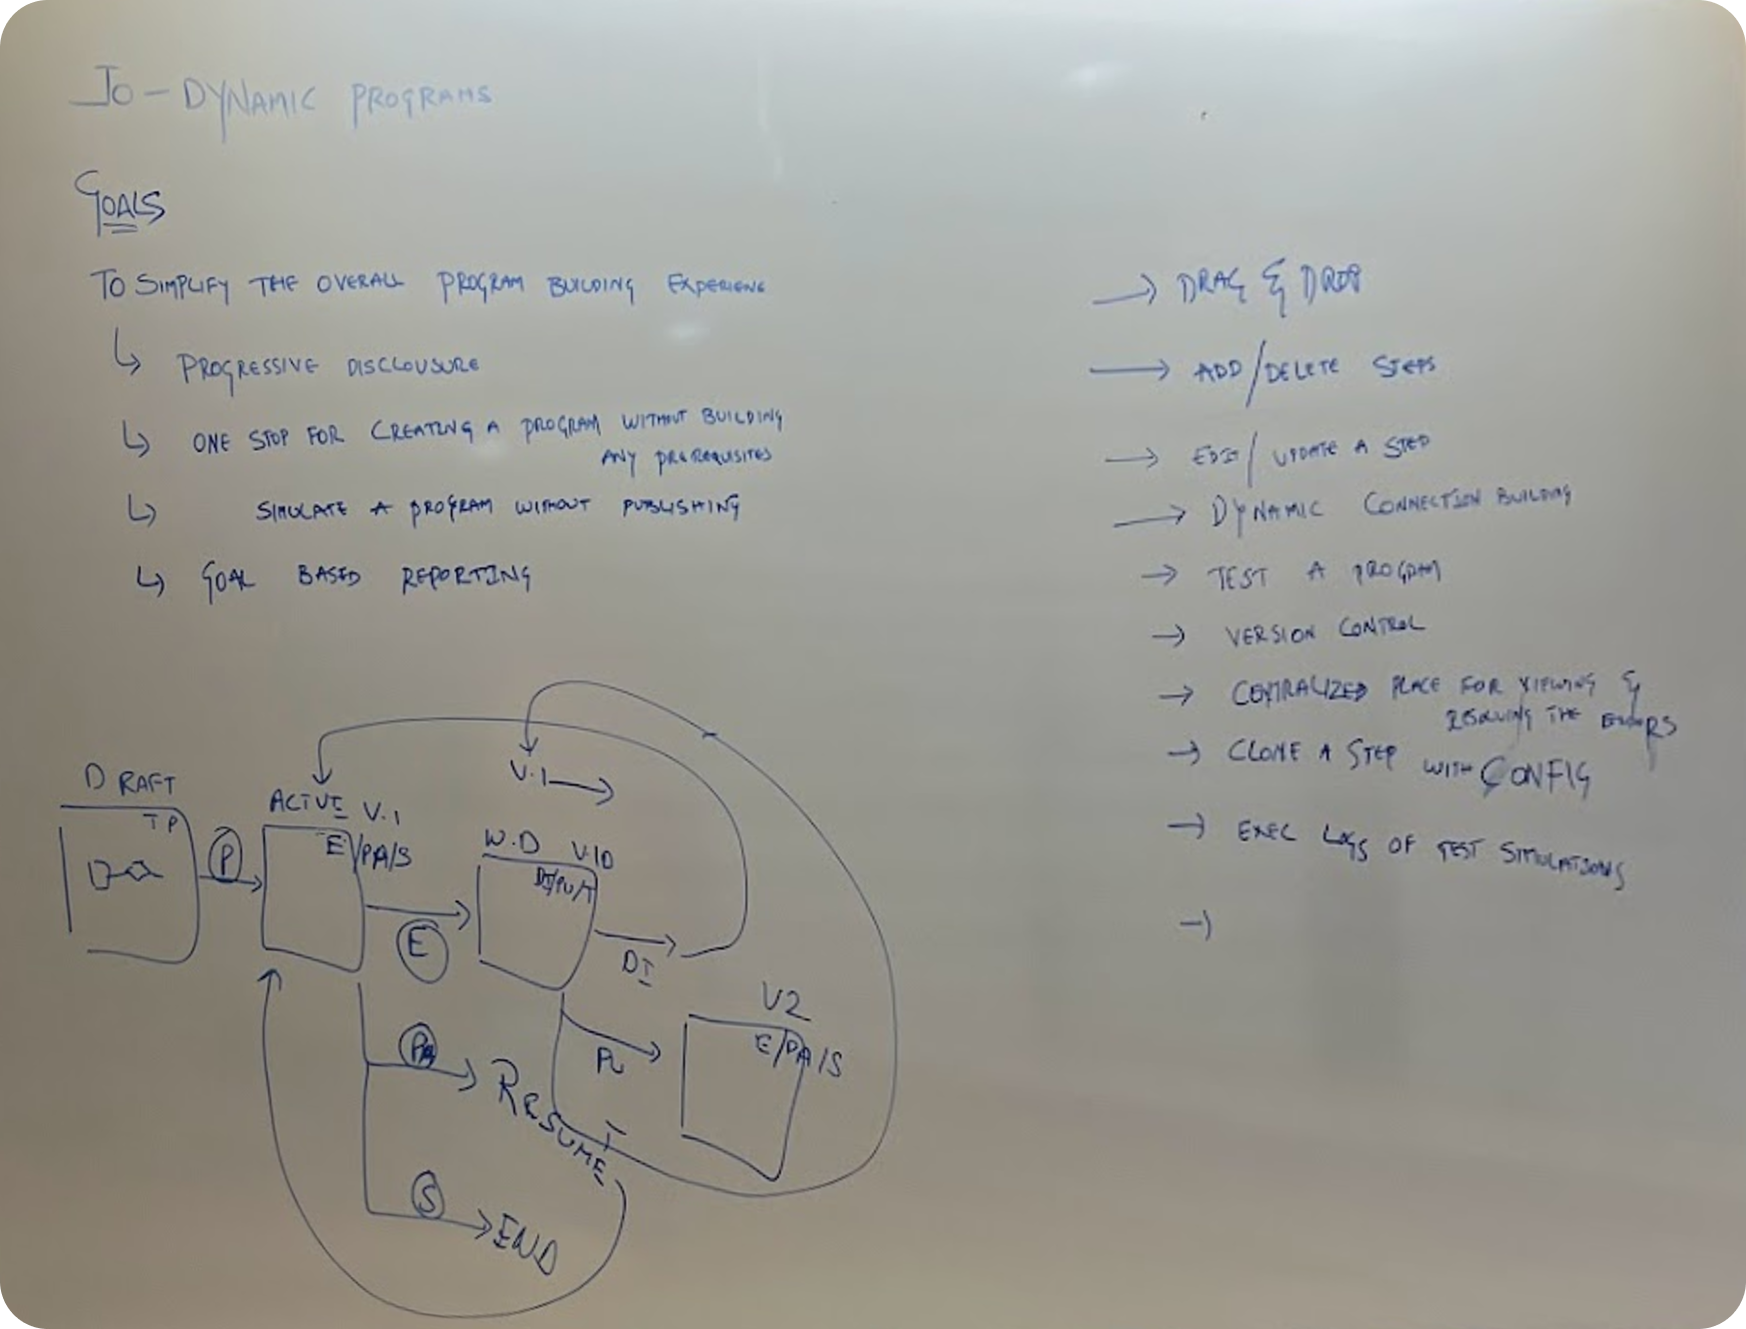 JO - DYNAMIC PROGRAMS
GOALS
TO SIMPLIFY THE OVERALL PROGRAM BUILDING EXPERIENC
PROGRESSIVE DISCLOUSURE
ONE STOP FOR CREATING A PROGRAM WITHOUT BUILDING
ANY PREREQUISITES
SIMULATE A PROGRAM WITHOUT PUBLISHING
GOAL BASED REPORTING
→ DRAG & DROP
→ ADD/DELETE STEPS
→ EDIT/UPDATE A STEP
→ DYNAMIC CONNECTION BUILDING
→ TEST A PROGRAM
→ VERSION CONTROL
→ CENTRALIZED PLACE FOR VIEWING &
RESOLVING THE ERRORS
→ CLONE A STEP WITH CONFIG
→ EXEC LOGS OF TEST SIMULATIONS
→
DRAFT
TP
P
ACTIVE V.1
E/PA/S
E
V.1
W.D V.1D
DI/PU/T
DI
PU
V2
E/PA/S
PA
RESUME
T
S
END